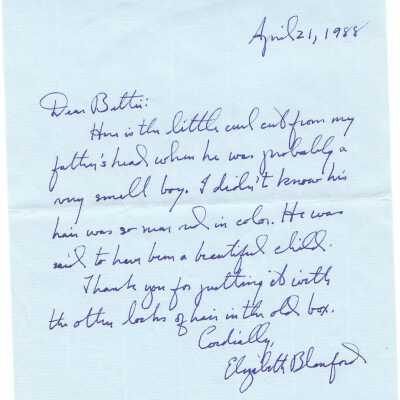 April 21, 1988
Dear Bettie:
Here is the little curl cut from my
father's head when he was probably a
very small boy. I didn't know his
hair was so near red in color. He was
said to have been a beautiful child.
Thank you for putting it with
the other locks of hair in the old box.
Cordially,
Elizabeth Blanford